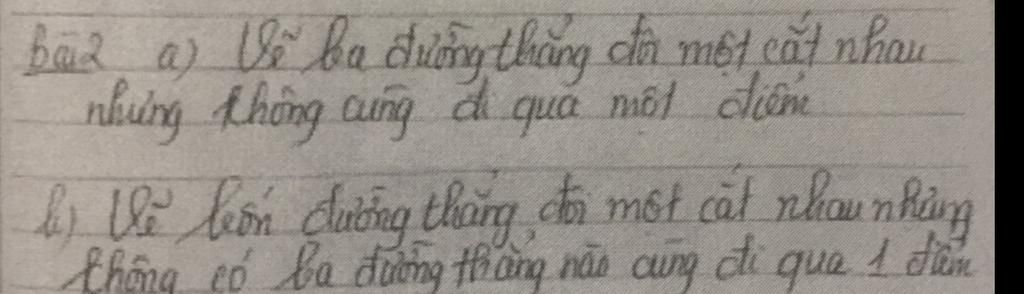 bài2 a) Vẽ ba đường thẳng đôi một cắt nhau
nhưng không cùng đi qua một điểm
b) Vẽ bốn đường thẳng đôi một cắt nhau nhưng
không có ba đường thẳng nào cùng đi qua 1 điểm